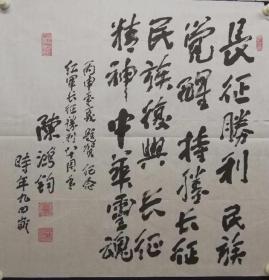 長征勝利 民族
覺醒 持勝長征
民族復興 長征
精神 中華靈魂
紅軍長征勝利八十周年
陳鴻鈞
時年九四歲